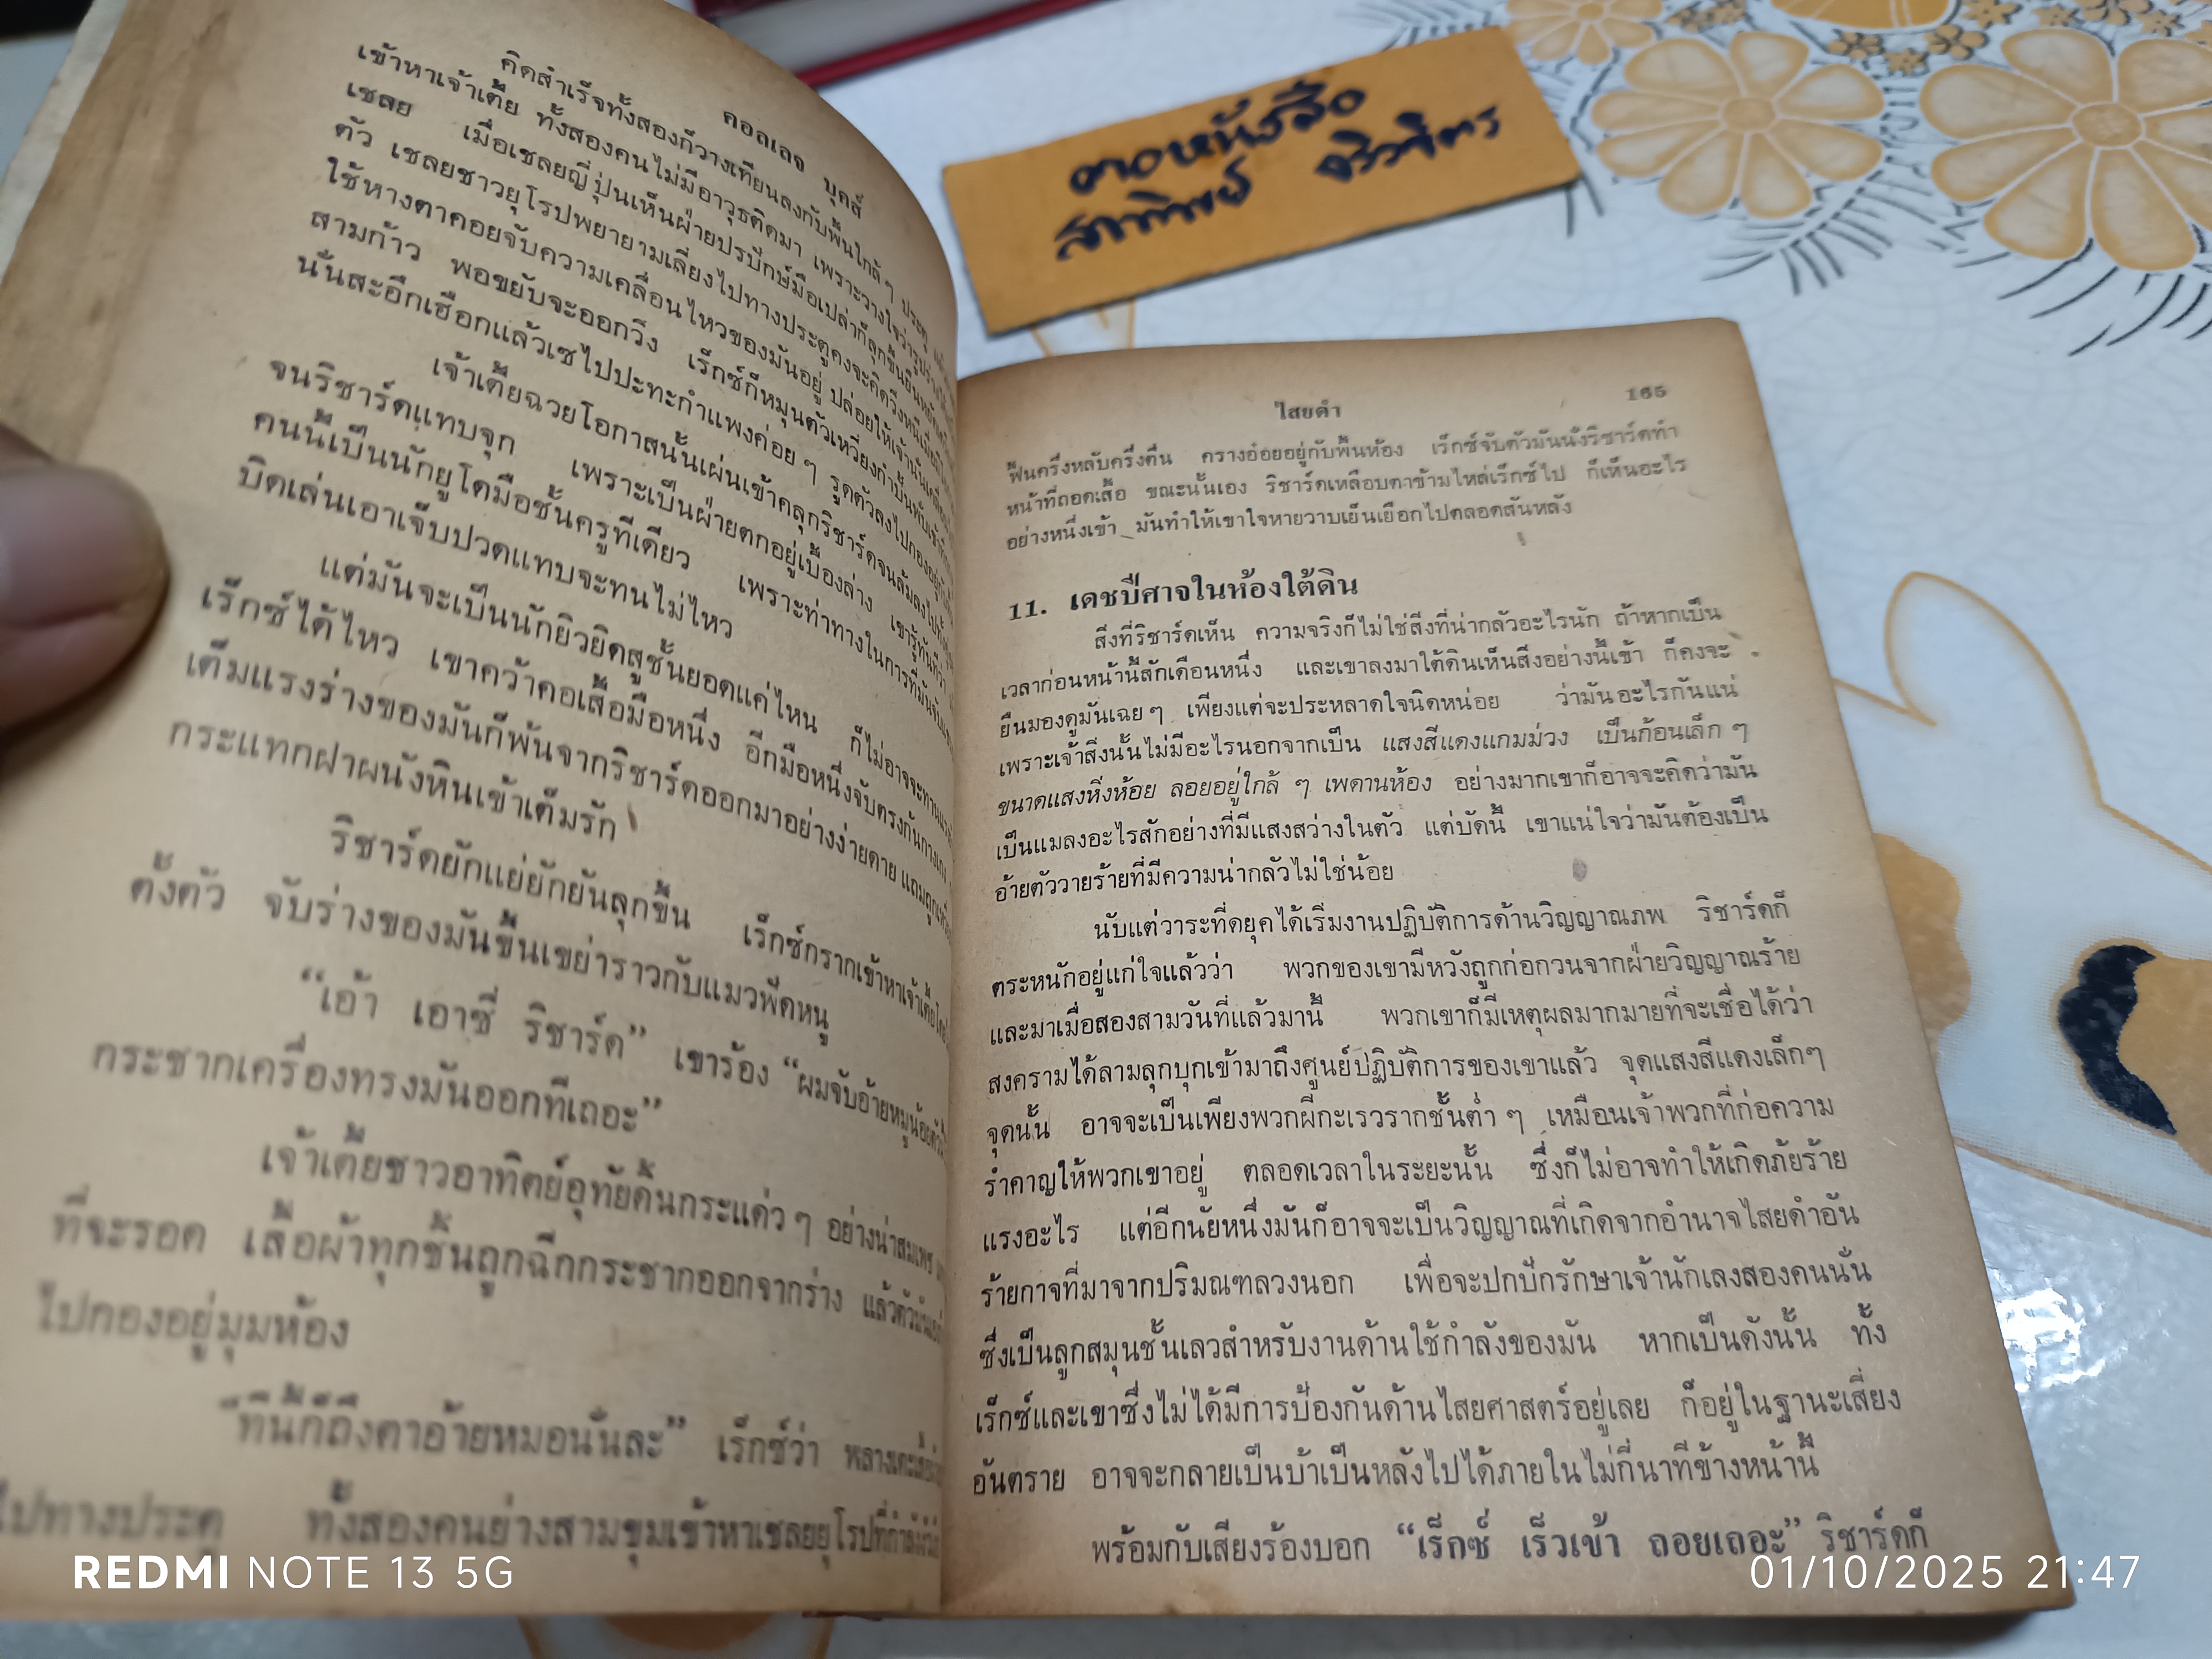 คอลเลจ บุคส์
คิดสำเร็จทั้งสองก็วางเทียนลงกับพื้นใกล้ ๆ ประตู
เข้าหาเจ้าเตี้ย ทั้งสองคนไม่มีอาวุธติดมา เพราะวางใจว่ารูปร่าง
เชลย เมื่อเชลยญี่ปุ่นเห็นฝ่ายปรปักษ์มือเปล่าก็ลุกขึ้นยืน
ตัว เชลยชาวยุโรปพยายามเลี่ยงไปทางประตูคงจะคิดวิ่งหนี
ใช้หางตาคอยจับความเคลื่อนไหวของมันอยู่ ปล่อยให้เจ้านั่น
สามก้าว พอขยับจะออกวิ่ง เร็กซ์ก็หมุนตัวเหวี่ยงกำปั้น
นั่นสะอึกเฮือกแล้วเซไปปะทะกำแพงค่อย ๆ รูดตัวลงไปกองอยู่
เจ้าเตี้ยฉวยโอกาสนั้นเผ่นเข้าคลุกริชาร์ดจนล้มลงไป
จนริชาร์ดแทบจุก เพราะเป็นฝ่ายตกอยู่เบื้องล่าง เขารู้ทันทีว่า
คนนี้เป็นนักยูโดมือชั้นครูทีเดียว เพราะท่าทางในการที่มันจับ
บิดเล่นเอาเจ็บปวดแทบจะทนไม่ไหว
แต่มันจะเป็นนักยิวยิตสูชั้นยอดแค่ไหน ก็ไม่อาจจะทาน
เร็กซ์ได้ไหว เขาคว้าคอเสื้อมือหนึ่ง อีกมือหนึ่งจับตรงก้นกางเกง
เต็มแรงร่างของมันก็พ้นจากริชาร์ดออกมาอย่างง่ายดาย แถมถูก
กระแทกฝาผนังหินเข้าเต็มรัก
ริชาร์ดยักแย่ยักยันลุกขึ้น เร็กซ์กรากเข้าหาเจ้าเตี้ย
ตั้งตัว จับร่างของมันขึ้นเขย่าราวกับแมวฟัดหนู
“เอ้า เอาซี่ ริชาร์ด” เขาร้อง “ผมจับอ้ายหมูน้อยตัวนี้
กระชากเครื่องทรงมันออกทีเถอะ”
เจ้าเตี้ยชาวอาทิตย์อุทัยดิ้นกระแด่ว ๆ อย่างน่าสมเพช
ที่จะรอด เสื้อผ้าทุกชิ้นถูกฉีกกระชากออกจากร่าง
ไปกองอยู่มุมห้อง
“ทีนี้ก็ถึงตาอ้ายหมอนั่นละ” เร็กซ์ว่า
ไปทางประตู ทั้งสองคนย่างสามขุมเข้าหาเชลยยุโรป
ตอหนังสือ
ไสยดำ 165
ฟื้นครึ่งหลับครึ่งตื่น ครางอ๋อยอยู่กับพื้นห้อง เร็กซ์จับตัวมันนั่งริชาร์ดทำ
หน้าที่ถอดเสื้อ ขณะนั้นเอง ริชาร์ดเหลือบตาข้ามไหล่เร็กซ์ไป ก็เห็นอะไร
อย่างหนึ่งเข้า มันทำให้เขาใจหายวาบเย็นเยือกไปตลอดสันหลัง
11. เดชปีศาจในห้องใต้ดิน
สิ่งที่ริชาร์ดเห็น ความจริงก็ไม่ใช่สิ่งที่น่ากลัวอะไรนัก ถ้าหากเป็น
เวลาก่อนหน้านี้สักเดือนหนึ่ง และเขาลงมาใต้ดินเห็นสิ่งอย่างนี้เข้า ก็คงจะ
ยืนมองดูมันเฉย ๆ เพียงแต่จะประหลาดใจนิดหน่อย ว่ามันอะไรกันแน่
เพราะเจ้าสิ่งนั้นไม่มีอะไรนอกจากเป็น แสงสีแดงแกมม่วง เป็นก้อนเล็ก ๆ
ขนาดแสงหิ่งห้อย ลอยอยู่ใกล้ ๆ เพดานห้อง อย่างมากเขาก็อาจจะคิดว่ามัน
เป็นแมลงอะไรสักอย่างที่มีแสงสว่างในตัว แต่บัดนี้ เขาแน่ใจว่ามันต้องเป็น
อ้ายตัววายร้ายที่มีความน่ากลัวไม่ใช่น้อย
นับแต่วาระที่ดยุคได้เริ่มงานปฏิบัติการด้านวิญญาณภพ ริชาร์ดก็
ตระหนักอยู่แก่ใจแล้วว่า พวกของเขามีหวังถูกก่อกวนจากฝ่ายวิญญาณร้าย
และมาเมื่อสองสามวันที่แล้วมานี้ พวกเขาก็มีเหตุผลมากมายที่จะเชื่อได้ว่า
สงครามได้ลามลุกบุกเข้ามาถึงศูนย์ปฏิบัติการของเขาแล้ว จุดแสงสีแดงเล็กๆ
จุดนั้น อาจจะเป็นเพียงพวกผีกะเรวรากชั้นต่ำ ๆ เหมือนเจ้าพวกที่ก่อความ
รำคาญให้พวกเขาอยู่ ตลอดเวลาในระยะนั้น ซึ่งก็ไม่อาจทำให้เกิดภัยร้าย
แรงอะไร แต่อีกนัยหนึ่งมันก็อาจจะเป็นวิญญาณที่เกิดจากอำนาจไสยดำอัน
ร้ายกาจที่มาจากปริมณฑลวงนอก เพื่อจะปกปักรักษาเจ้านักเลงสองคนนั่น
ซึ่งเป็นลูกสมุนชั้นเลวสำหรับงานด้านใช้กำลังของมัน หากเป็นดังนั้น ทั้ง
เร็กซ์และเขาซึ่งไม่ได้มีการป้องกันด้านไสยศาสตร์อยู่เลย ก็อยู่ในฐานะเสี่ยง
อันตราย อาจจะกลายเป็นบ้าเป็นหลังไปได้ภายในไม่กี่นาทีข้างหน้านี้
พร้อมกับเสียงร้องบอก “เร็กซ์ เร็วเข้า ถอยเถอะ” ริชาร์ดก็
REDMI NOTE 13 5G
01/10/2025 21:47